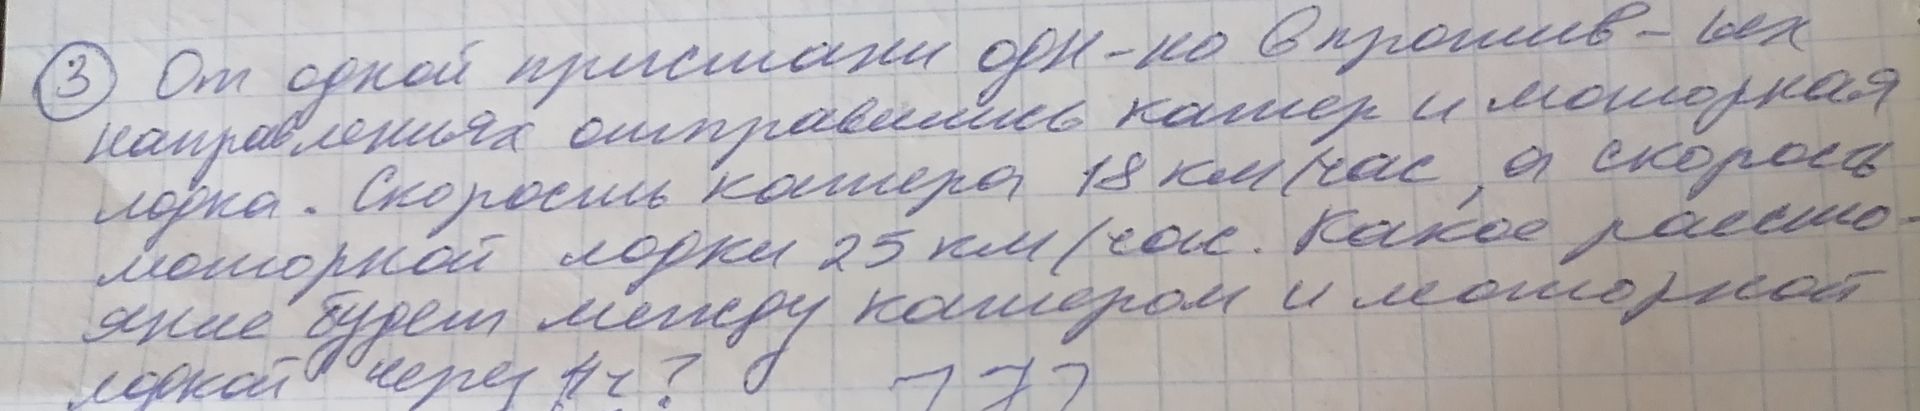 ③ От одной пристани одн-но в против-ых
направлениях отправились катер и моторная
лодка. Скорость катера 18 км/час, а скорость
моторной лодки 25 км/час. Какое рассто-
яние будет между катером и моторной
лодкой через 4ч?